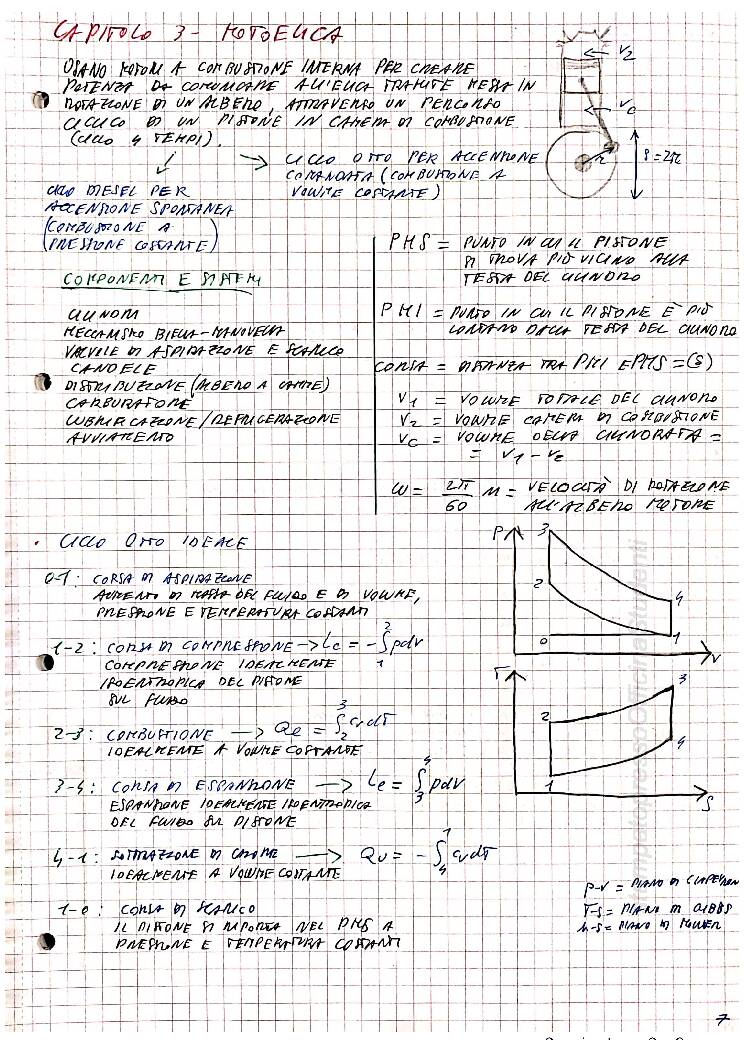 CAPITOLO 3 - MOTOELICA
USANO MOTORI A COMBUSTIONE INTERNA PER CREARE
POTENZA DA COMUNICARE ALL'ELICA TRAMITE MESSA IN
ROTAZIONE DI UN ALBERO, ATTRAVERSO UN PERCORSO
CICLICO DI UN PISTONE IN CAMERA DI COMBUSTIONE
(CICLO 4 TEMPI).
V2
VC
r
S=2r
CICLO OTTO PER ACCENSIONE
COMANDATA (COMBUSTIONE A
VOLUME COSTANTE)
CICLO DIESEL PER
ACCENSIONE SPONTANEA
(COMBUSTIONE A
PRESSIONE COSTANTE)
COMPONENTI E SISTEMI
CILINDRI
MECCANISMO BIELLA-MANOVELLA
VALVOLE DI ASPIRAZIONE E SCARICO
CANDELE
DISTRIBUZIONE (ALBERO A CAMME)
CARBURATORE
LUBRIFICAZIONE/REFRIGERAZIONE
AVVIAMENTO
PMS = PUNTO IN CUI IL PISTONE
SI TROVA PIÙ VICINO ALLA
TESTA DEL CILINDRO
PMI = PUNTO IN CUI IL PISTONE È PIÙ
LONTANO DALLA TESTA DEL CILINDRO
CORSA = DISTANZA TRA PMI E PMS = (S)
V1 = VOLUME TOTALE DEL CILINDRO
V2 = VOLUME CAMERA DI COMBUSTIONE
VC = VOLUME DELLA CILINDRATA =
= V1 - V2
ω = 2π/60 n = VELOCITÀ DI ROTAZIONE
ALL'ALBERO MOTORE
• CICLO OTTO IDEALE
0-1: CORSA DI ASPIRAZIONE
AUMENTO DI MASSA DEL FLUIDO E DI VOLUME,
PRESSIONE E TEMPERATURA COSTANTI
1-2: CORSA DI COMPRESSIONE → Lc = -∫₁² pdv
COMPRESSIONE IDEALMENTE
ISOENTROPICA DEL PISTONE
SUL FLUIDO
2-3: COMBUSTIONE → Qe = ∫₂³ cvdT
IDEALMENTE A VOLUME COSTANTE
3-4: CORSA DI ESPANSIONE → Le = ∫₃⁴ pdv
ESPANSIONE IDEALMENTE ISOENTROPICA
DEL FLUIDO SUL PISTONE
4-1: SOTTRAZIONE DI CALORE → Qu = -∫₄¹ cvdT
IDEALMENTE A VOLUME COSTANTE
1-0: CORSA DI SCARICO
IL PISTONE SI RIPORTA NEL PMS A
PRESSIONE E TEMPERATURA COSTANTI
P
3
2
4
0
1
V
T
3
2
4
1
S
P-V = PIANO DI CLAPEYRON
T-S = PIANO DI GIBBS
h-S = PIANO DI MOLLIER
7